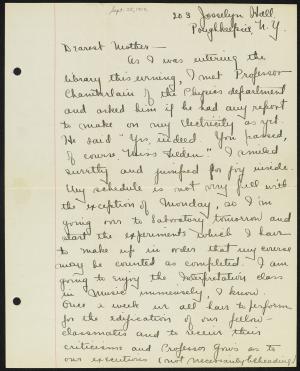 Sept. 25, 1912
203 Josselyn Hall,
Poughkeepsie, N.Y.
Dearest Mother—
As I was entering the
library this evening, I met Professor
Chamberlain of the Physics department
and asked him if he had any report
to make on my Electricity as yet.
He said "Yes, indeed. You passed,
of course, Miss
I smiled
sweetly and jumped for joy inside.
My schedule is not very full with
the exception of Monday, so I am
going over to laboratory tomorrow and
start the experiments which I have
to make up in order that my course
may be counted as completed. I am
going to enjoy the Interpretation class
in Music immensely, I know.
Once a week we all have to perform
for the edification of our fellow-
classmates and to receive their
criticisms and Professor Gow's as to
our executions (not necessarily beheading)